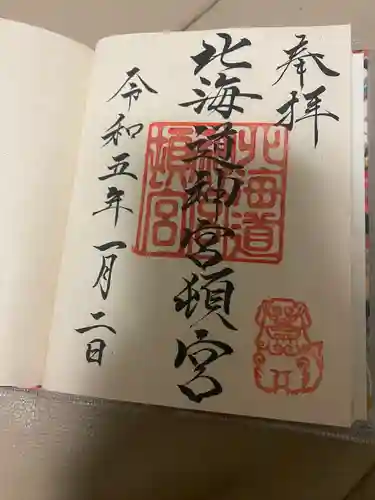 奉拝
北海道神宮頓宮
令和五年一月二日
北海道
神宮
頓宮